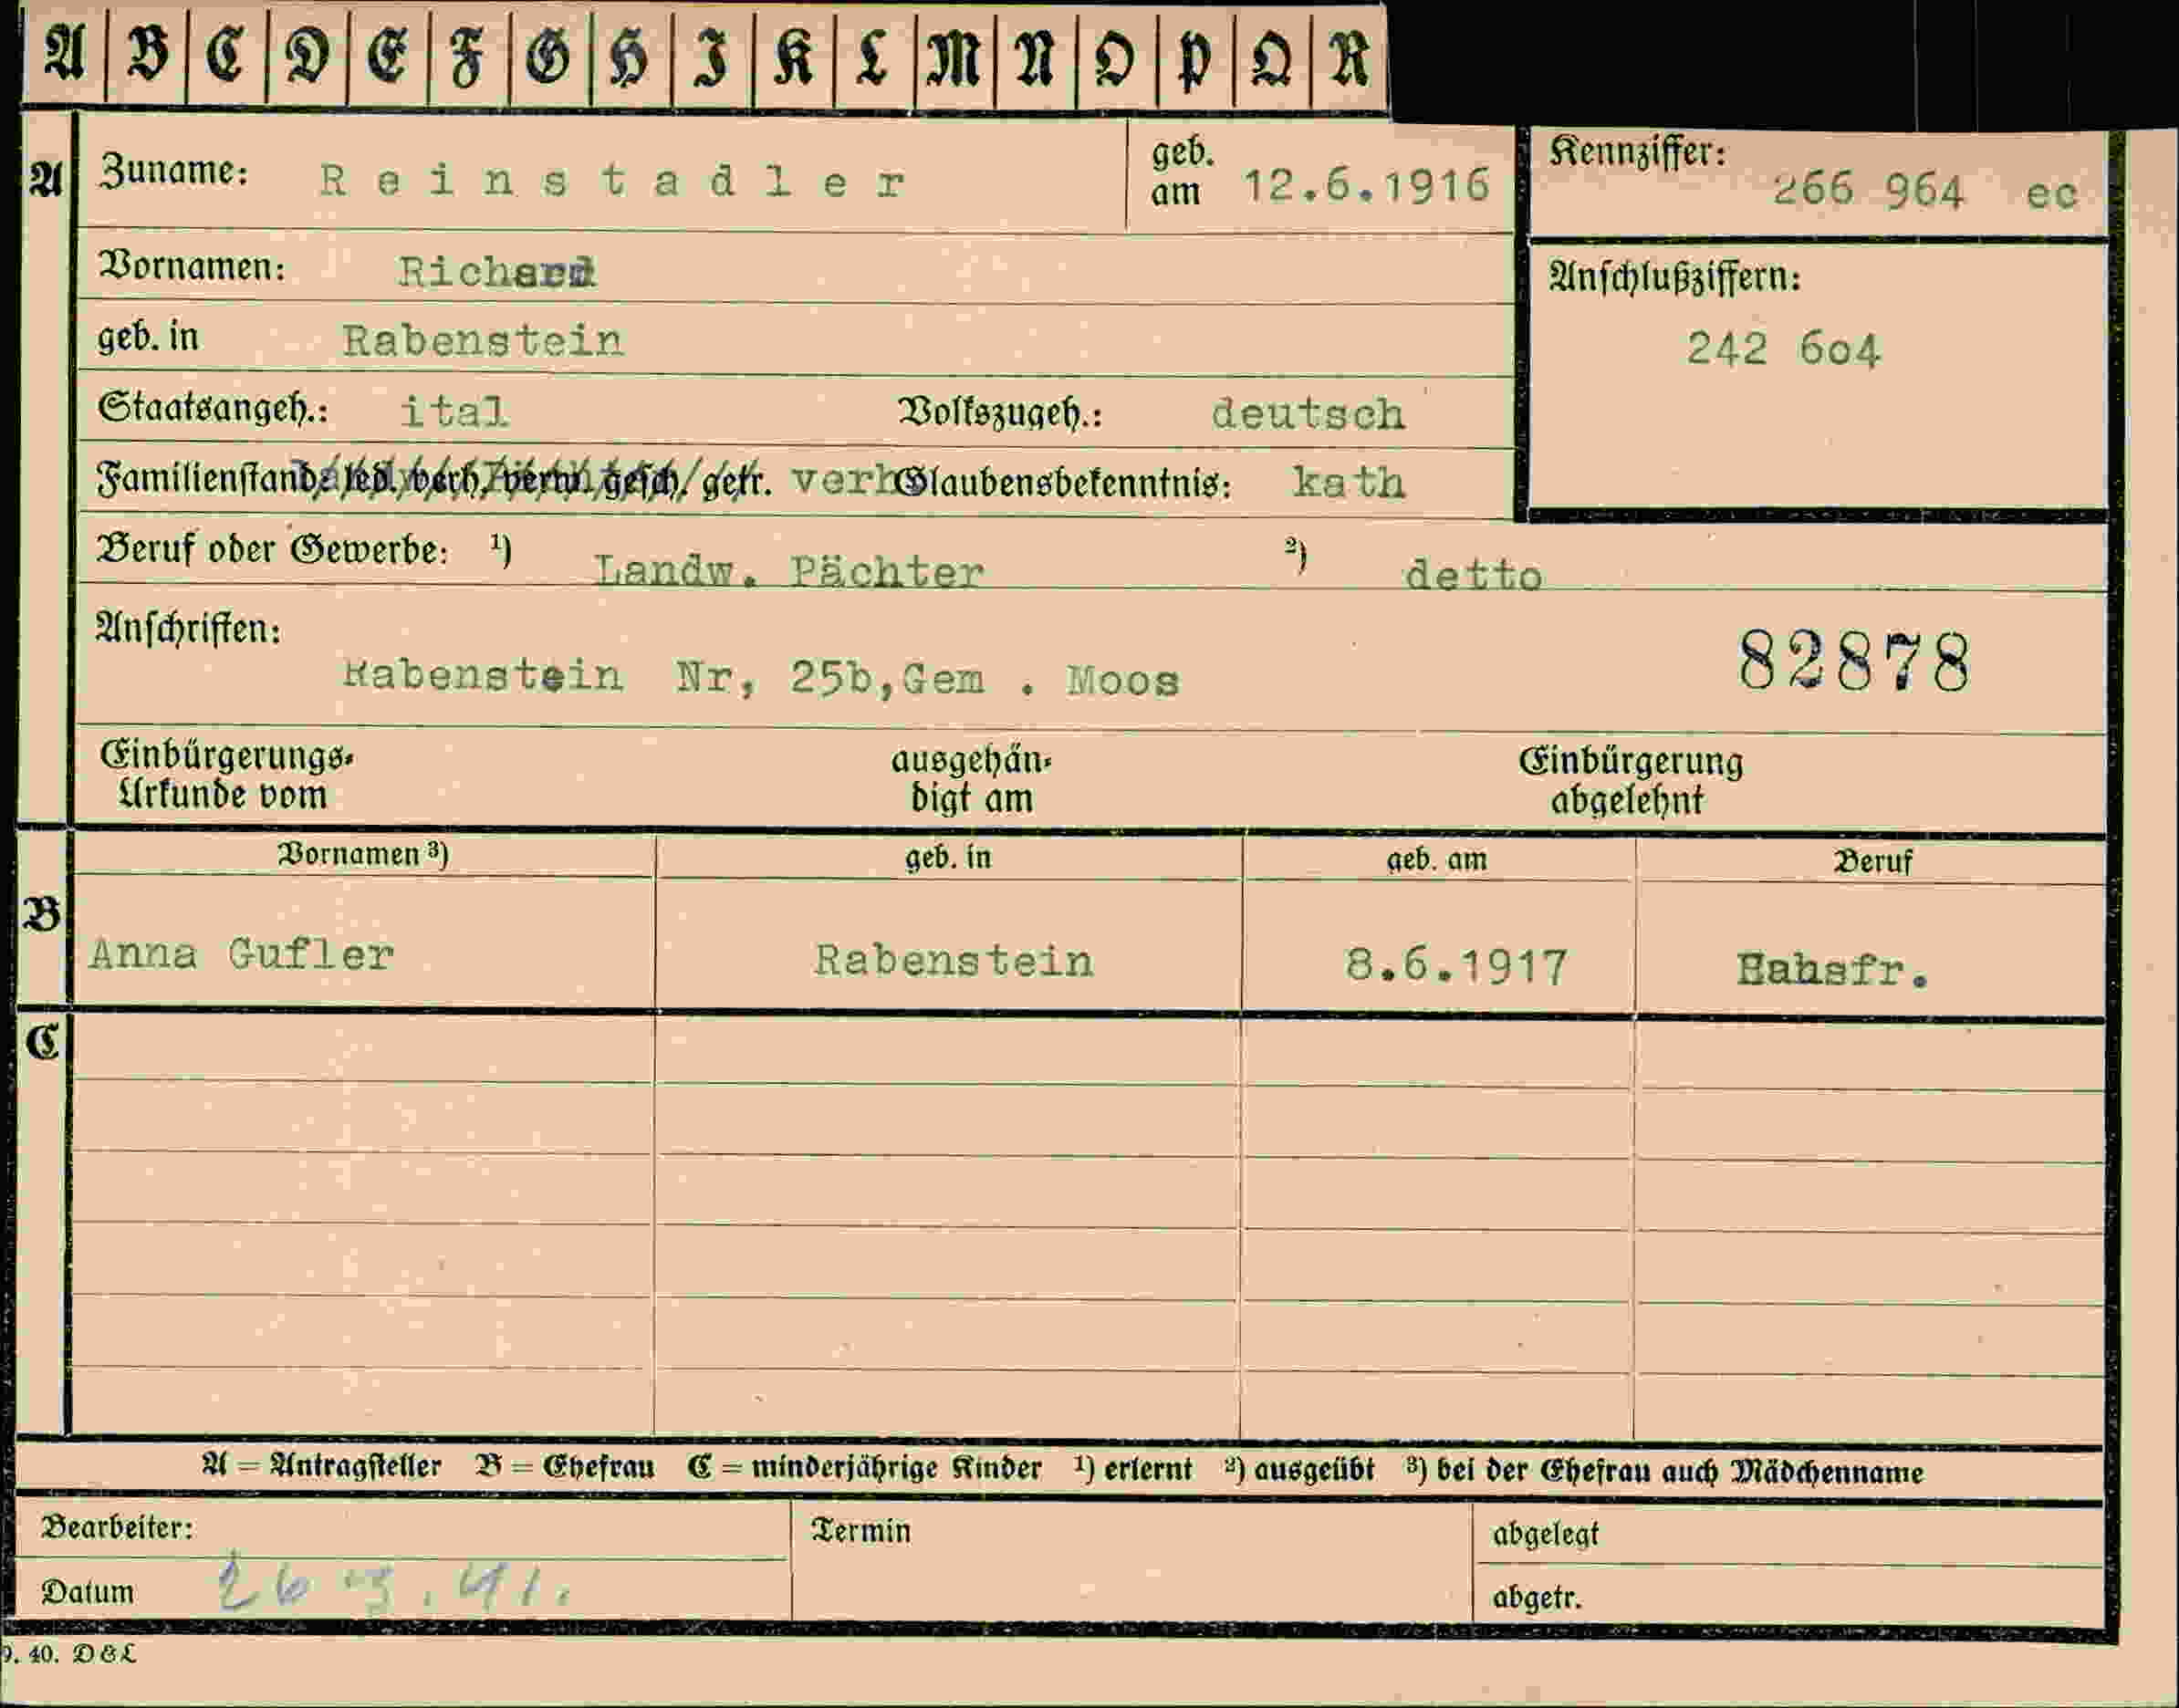 A B C D E F G H I K L M N O P Q R
A Zuname: Reinstadler geb. am 12.6.1916 Kennziffer: 266 964 ec
Vornamen: Richard
Anschlußziffern:
geb. in Rabenstein 242 6o4
Staatsangeh.: ital Volkszugeh.: deutsch
Familienstand: led. verh. verw. gesch. getr. verh Glaubensbekenntnis: kath
Beruf oder Gewerbe: ¹) Landw. Pächter ²) detto
Anschriften: 82878
Rabenstein Nr, 25b,Gem . Moos
Einbürgerungs- ausgehän- Einbürgerung
Urkunde vom digt am abgelehnt
Vornamen ³) geb. in geb. am Beruf
B
Anna Gufler Rabenstein 8.6.1917 Hahsfr.
C
A = Antragsteller B = Ehefrau C = minderjährige Kinder ¹) erlernt ²) ausgeübt ³) bei der Ehefrau auch Mädchenname
Bearbeiter: Termin abgelegt
Datum 26.3.41. abgetr.
9. 40. D&L